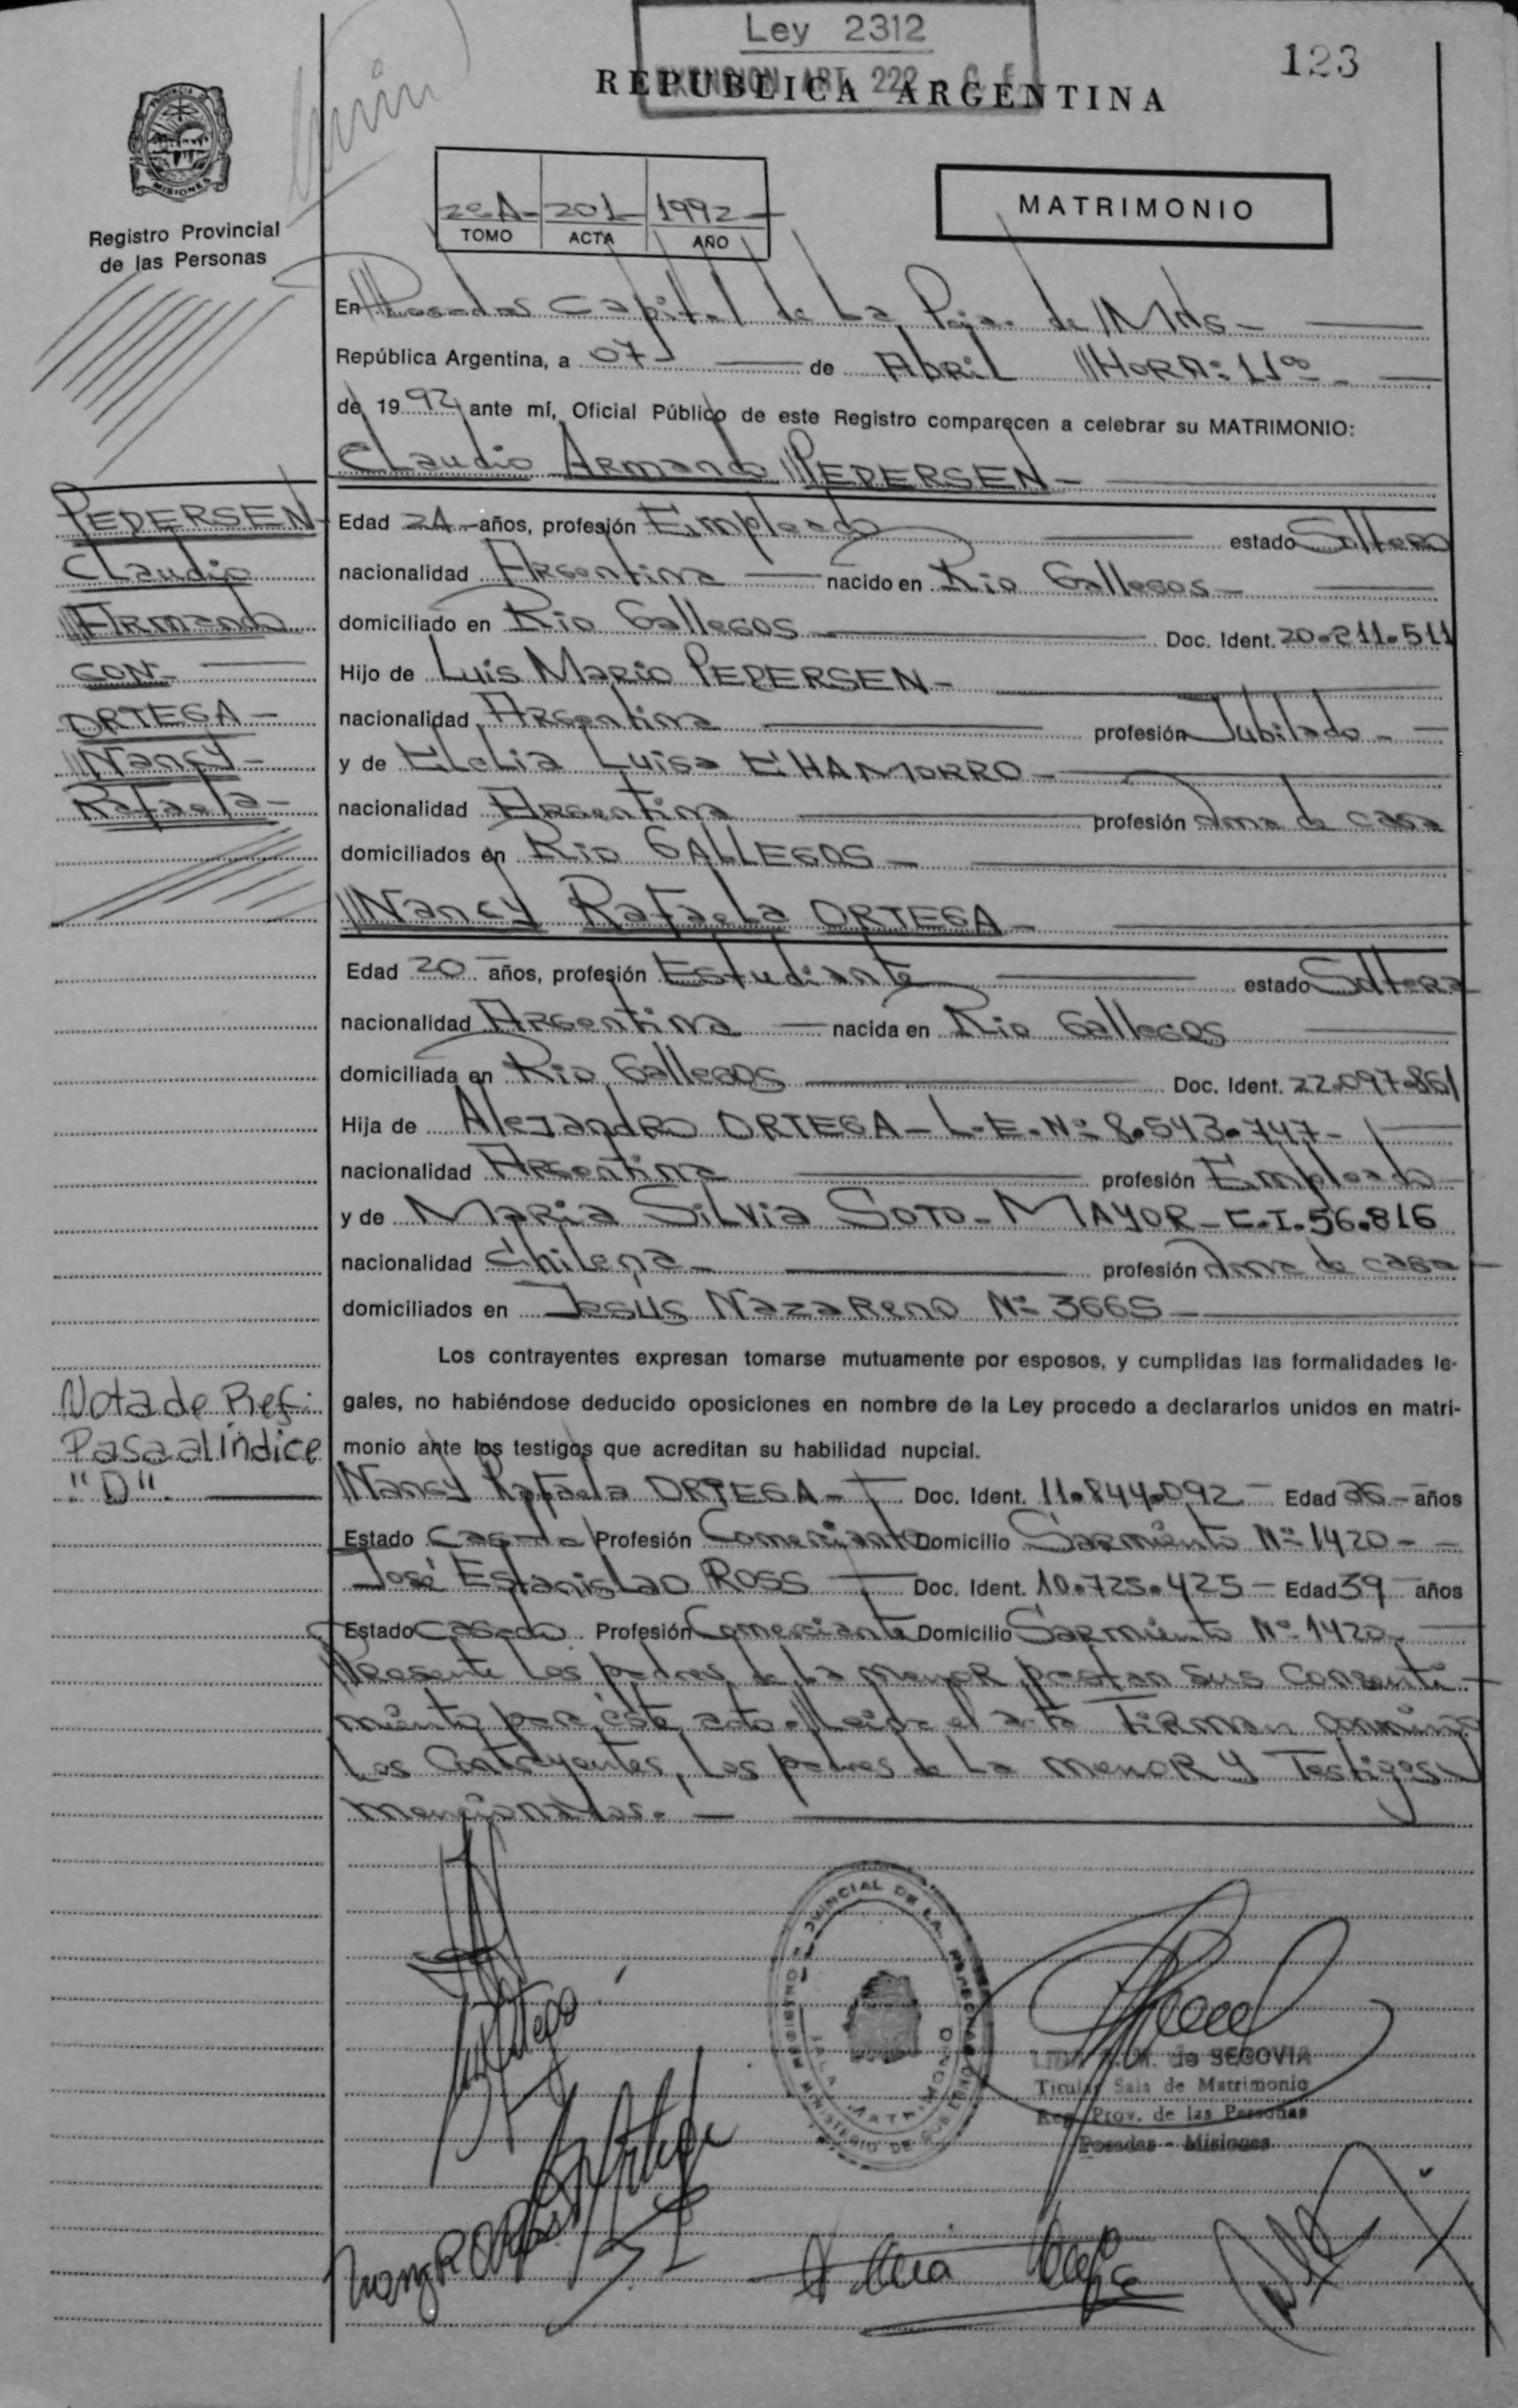 Ley 2312
EXENSION ART. 222 - C. F.
123
REPUBLICA ARGENTINA
PROVINCIA DE
MISIONES
Registro Provincial
de las Personas
2ºA- 201- 1992-
TOMO ACTA AÑO
MATRIMONIO
En Posadas Capital de La Pcja. de Mnes-
República Argentina, a 07 de Abril HORA: 11º-
de 1992 ante mí, Oficial Público de este Registro comparecen a celebrar su MATRIMONIO:
Claudio Armando PEDERSEN-
PEDERSEN-
Claudio
Armando
CON-
ORTEGA-
Nancy-
Rafaela-
Edad 24-años, profesión Empleado estado Soltero
nacionalidad Argentina nacido en Rio Gallegos-
domiciliado en Rio Gallegos Doc. Ident. 20.211.511
Hijo de Luis Mario PEDERSEN-
nacionalidad Argentina profesión Jubilado-
y de Luisa CHAMORRO-
nacionalidad Argentina profesión Ama de casa
domiciliados en Rio GALLEGOS-
Nancy Rafaela ORTEGA-
Edad 20 años, profesión Estudiante estado Soltera
nacionalidad Argentina nacida en Rio Gallegos
domiciliada en Rio Gallegos Doc. Ident. 22.097.861
Hija de Alejandro ORTEGA-L.E.Nº 8.543.747-
nacionalidad Argentina profesión Empleado
y de Maria Silvia SOTO-MAYOR-C.I.56.816
nacionalidad Chilena- profesión Ama de casa-
domiciliados en Jesús Nazareno Nº 3665-
Los contrayentes expresan tomarse mutuamente por esposos, y cumplidas las formalidades le-
gales, no habiéndose deducido oposiciones en nombre de la Ley procedo a declararlos unidos en matri-
monio ante los testigos que acreditan su habilidad nupcial.
Nota de Ref:
Pasa al índice
"D".
Nancy Rafaela ORTEGA- Doc. Ident. 11.844.092- Edad 36-años
Estado Casada Profesión Comerciante Domicilio Sarmiento Nº 1420-
José Estanislao ROSS Doc. Ident. 10.725.425- Edad 39 años
Estado Casado Profesión Comerciante Domicilio Sarmiento Nº 1420-
Presente Los padres de La menor prestan sus Consenti-
miento para éste acto. Leida el acta Firman conmigo
Los Contrayentes, Los padres de La menor y Testigos
mencionados.-
REGISTRO PROVINCIAL DE LAS PERSONAS
SALA MATRIMONIO
MINISTERIO DE GOBIERNO
de SEGOVIA
Titular Sala de Matrimonio
Reg. Prov. de las Personas
Posadas - Misiones